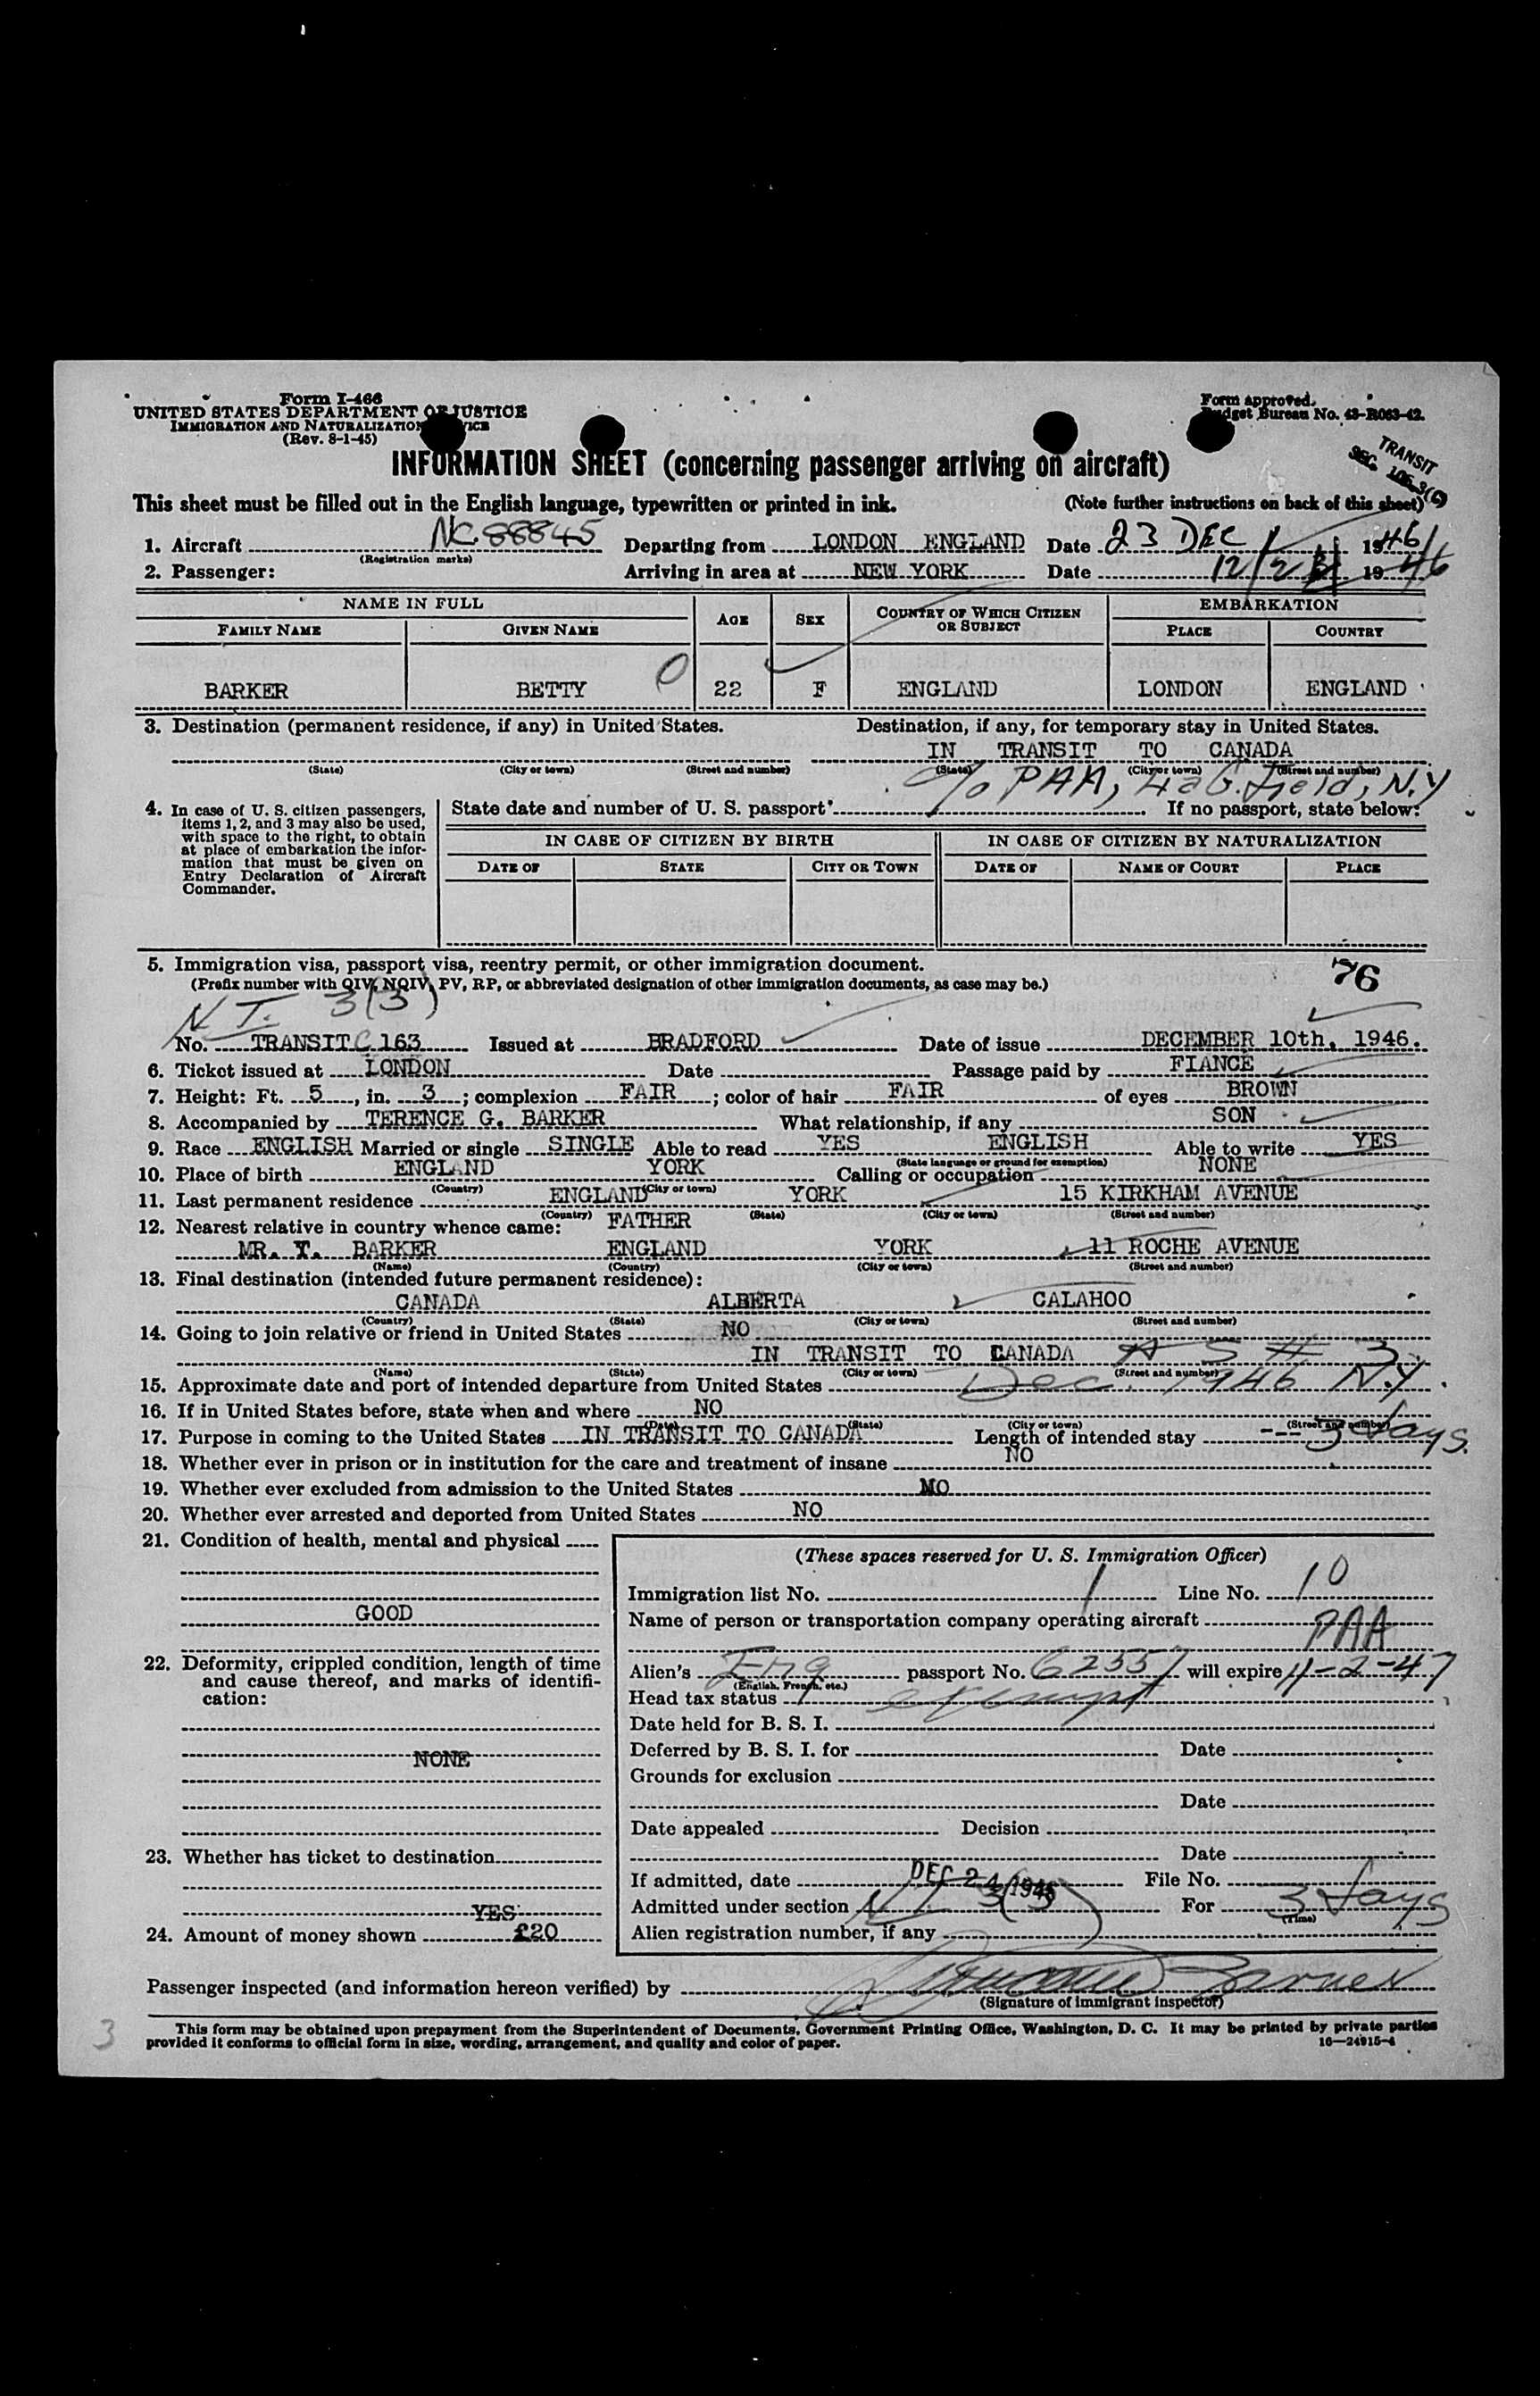 Form I-466
UNITED STATES DEPARTMENT OF JUSTICE
IMMIGRATION AND NATURALIZATION
(Rev. 8-1-45)
Form approved.
Budget Bureau No. 43-R063-42.
TRANSIT
SEC. 105.3(6)
INFORMATION SHEET (concerning passenger arriving on aircraft)
This sheet must be filled out in the English language, typewritten or printed in ink. (Note further instructions on back of this sheet)
1. Aircraft NC 88845 Departing from LONDON ENGLAND Date 23 DEC 1946
(Registration marks)
2. Passenger: Arriving in area at NEW YORK Date 12/2 1946
NAME IN FULL AGE SEX COUNTRY OF WHICH CITIZEN OR SUBJECT EMBARKATION
FAMILY NAME GIVEN NAME PLACE COUNTRY
BARKER BETTY 0 22 F ENGLAND LONDON ENGLAND
3. Destination (permanent residence, if any) in United States. Destination, if any, for temporary stay in United States.
IN TRANSIT TO CANADA
(State) (City or town) (Street and number) (State) (City or town) (Street and number)
c/o PAA, LaG. Field, N.Y
4. In case of U. S. citizen passengers, items 1, 2, and 3 may also be used, with space to the right, to obtain at place of embarkation the information that must be given on Entry Declaration of Aircraft Commander.
State date and number of U. S. passport If no passport, state below:
IN CASE OF CITIZEN BY BIRTH IN CASE OF CITIZEN BY NATURALIZATION
DATE OF STATE CITY OR TOWN DATE OF NAME OF COURT PLACE
5. Immigration visa, passport visa, reentry permit, or other immigration document.
(Prefix number with QIV, NQIV, PV, RP, or abbreviated designation of other immigration documents, as case may be.)
76
N.I. 3(3)
No. TRANSIT C 163 Issued at BRADFORD Date of issue DECEMBER 10th, 1946.
6. Ticket issued at LONDON Date Passage paid by FIANCE
7. Height: Ft. 5, in. 3; complexion FAIR; color of hair FAIR of eyes BROWN
8. Accompanied by TERENCE G. BARKER What relationship, if any SON
9. Race ENGLISH Married or single SINGLE Able to read YES ENGLISH Able to write YES
(State language or ground for exemption)
10. Place of birth ENGLAND YORK Calling or occupation NONE
(Country) (City or town)
11. Last permanent residence ENGLAND YORK 15 KIRKHAM AVENUE
(Country) (State) (City or town) (Street and number)
12. Nearest relative in country whence came: FATHER
MR. T. BARKER ENGLAND YORK 11 ROCHE AVENUE
(Name) (Country) (City or town) (Street and number)
13. Final destination (intended future permanent residence):
CANADA ALBERTA CALAHOO
(Country) (State) (City or town) (Street and number)
14. Going to join relative or friend in United States NO
IN TRANSIT TO CANADA
(Name) (State) (City or town) (Street and number)
15. Approximate date and port of intended departure from United States Dec. 1946 N.Y.
16. If in United States before, state when and where NO
(Date) (State) (City or town) (Street and number)
17. Purpose in coming to the United States IN TRANSIT TO CANADA Length of intended stay --- 3 days.
18. Whether ever in prison or in institution for the care and treatment of insane NO
19. Whether ever excluded from admission to the United States NO
20. Whether ever arrested and deported from United States NO
21. Condition of health, mental and physical
GOOD
22. Deformity, crippled condition, length of time and cause thereof, and marks of identification:
NONE
23. Whether has ticket to destination
YES
24. Amount of money shown £20
(These spaces reserved for U. S. Immigration Officer)
Immigration list No. 1 Line No. 10
Name of person or transportation company operating aircraft
PAA
Alien's Eng passport No. 62357 will expire 11-2-47
(English, French, etc.)
Head tax status exempt
Date held for B. S. I.
Deferred by B. S. I. for Date
Grounds for exclusion
Date
Date appealed Decision
Date
If admitted, date DEC 24 1946 File No.
Admitted under section N.I. 3(3) For 3 days
(Time)
Alien registration number, if any
Passenger inspected (and information hereon verified) by
(Signature of immigrant inspector)
3
This form may be obtained upon prepayment from the Superintendent of Documents, Government Printing Office, Washington, D. C. It may be printed by private parties
provided it conforms to official form in size, wording, arrangement, and quality and color of paper. 16—24915-4